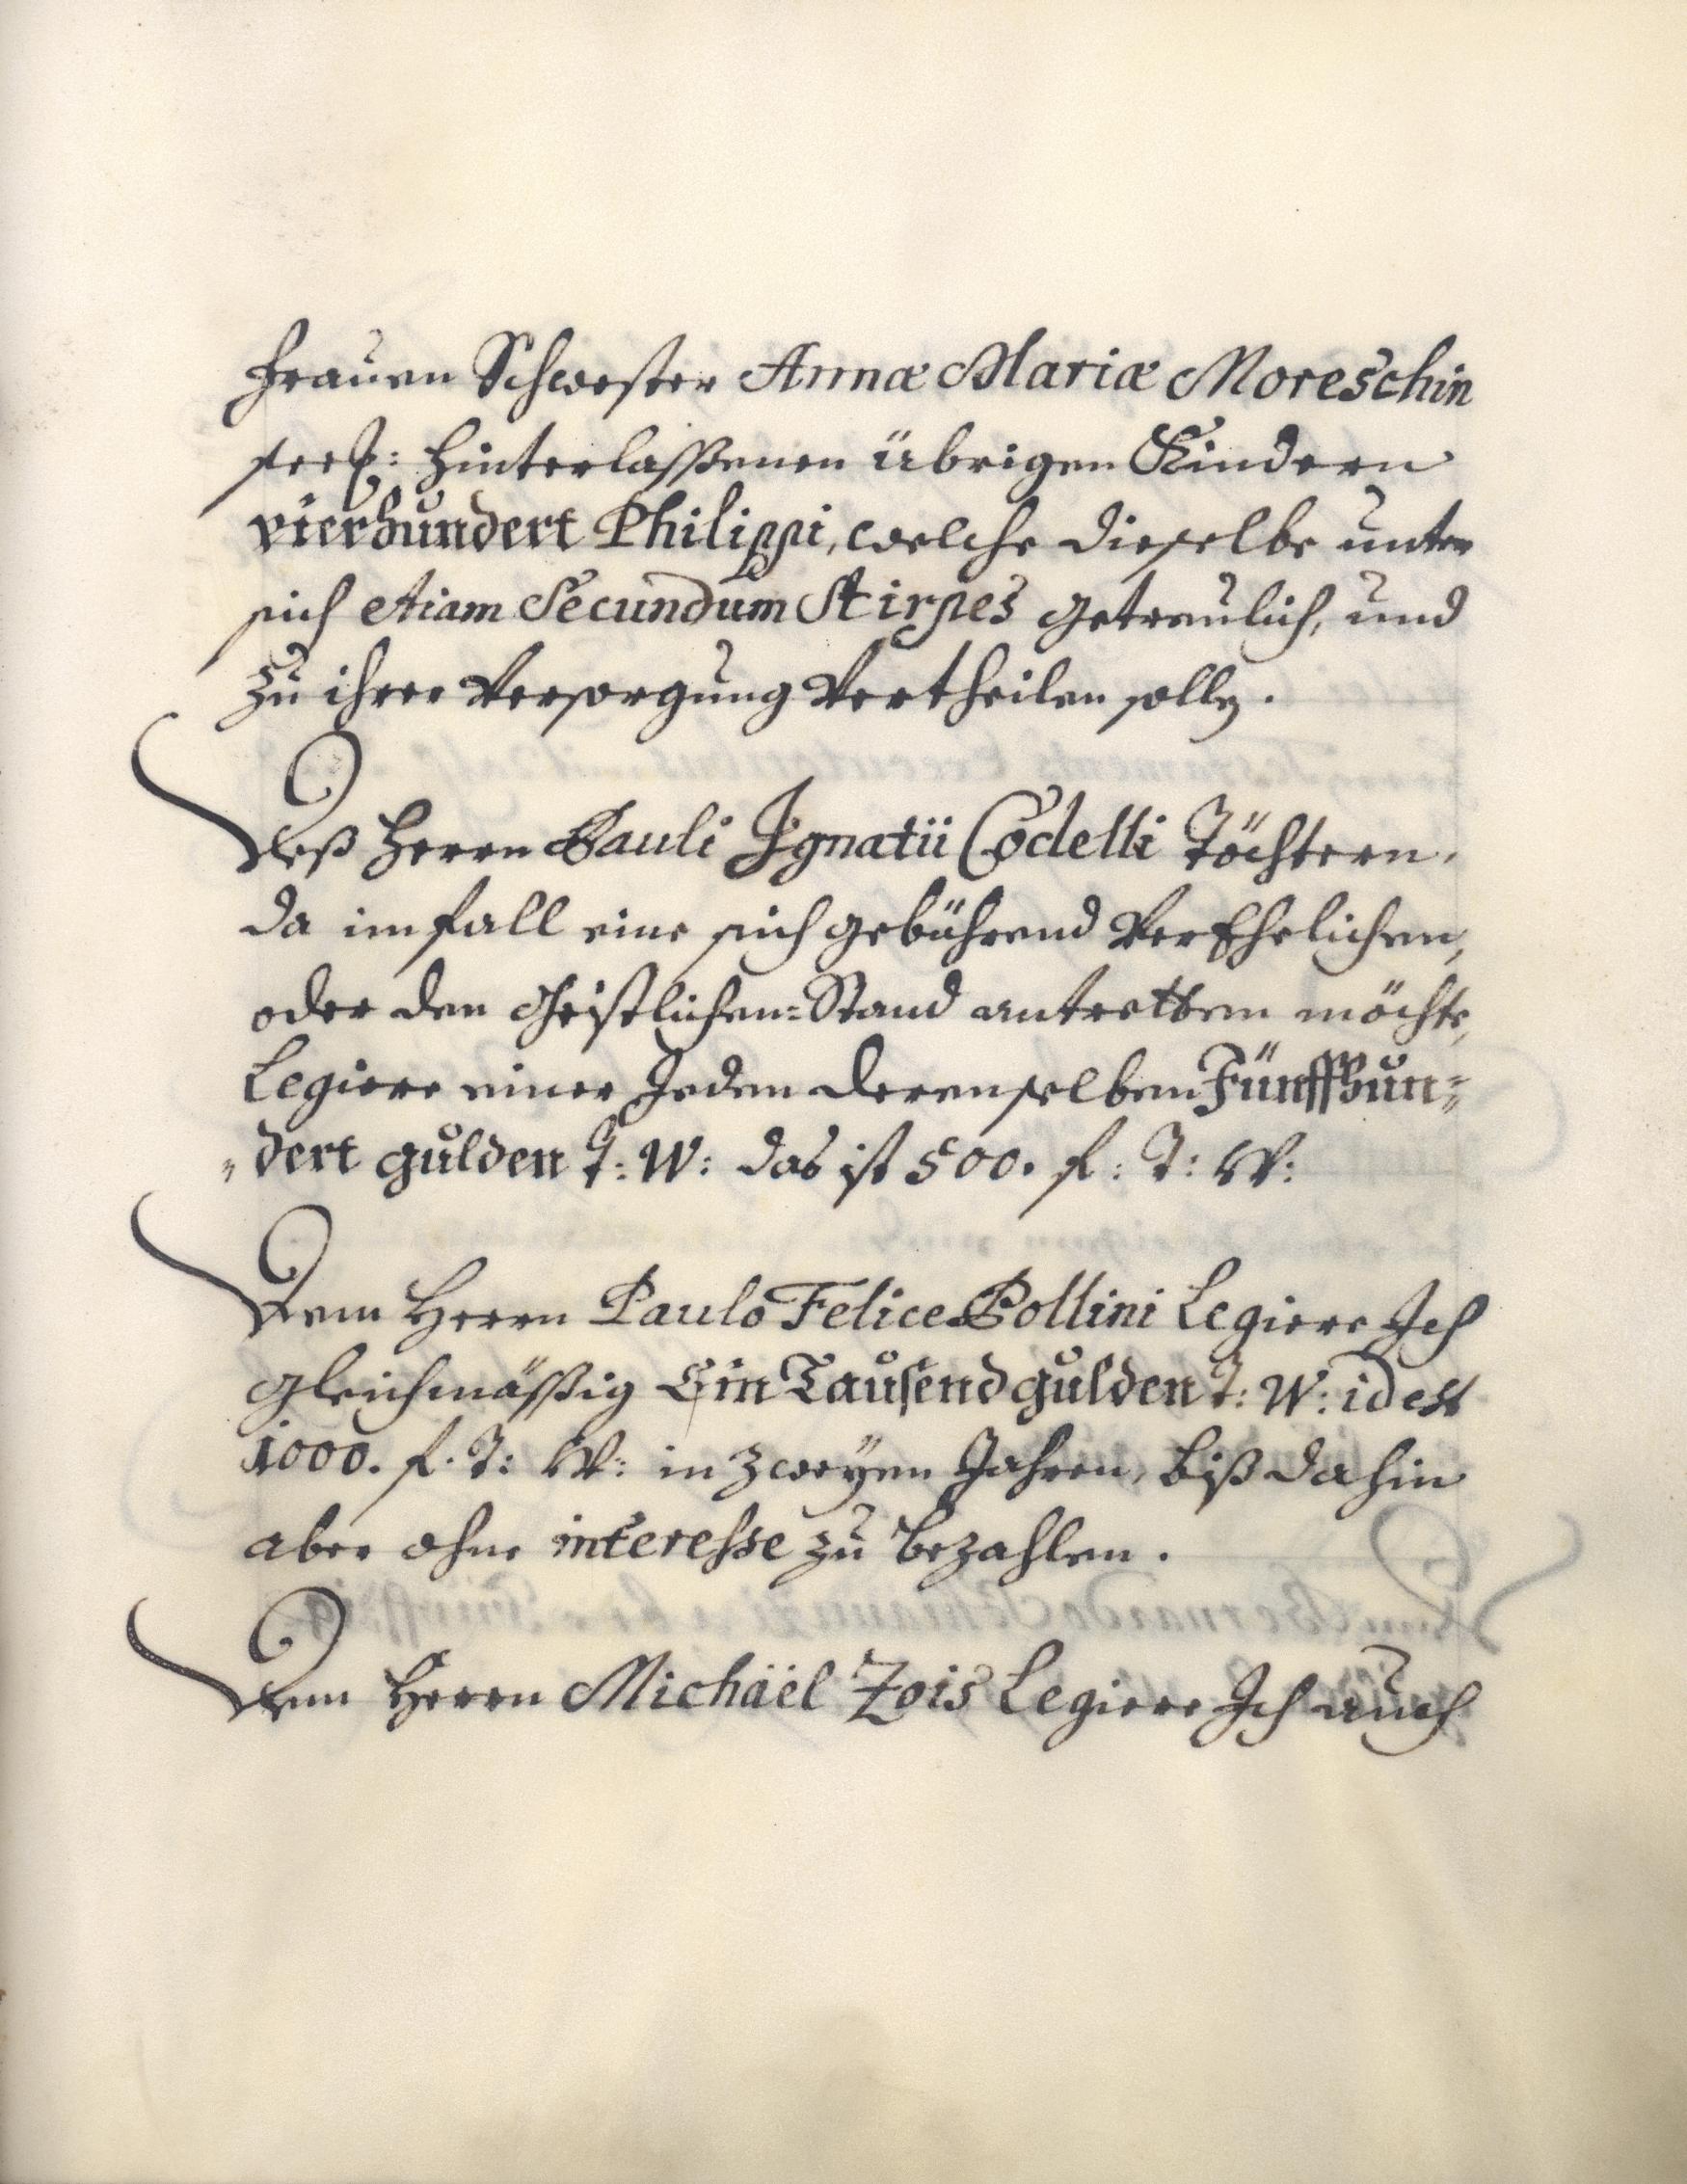 Frauen Schwester Annæ Mariæ Moreschin
seel: hinterlaßenen übrigen Kindern
vierhundert Philippi, welche dieselbe unter
sich etiam Secundum Stirpes getreulich, und
zu ihrer Versorgung Vertheilen solln.
Deß Herrn Pauli Ignatii Codelli Töchtern,
da im fall eine sich gebührend VerEhelichen,
oder den Geistlichen=Stand antretten möchte,
Legiere einer Jeden derenselben Fünffhun=
"dert gulden T: W: das ist 500. f: T: W:
Dem Herrn Paulo Felice Pollini Legiere Ich
gleichmäßig Ein Tausend gulden T: W: id est
1000. f. T: W: in zweyen Jahren, biß dahin
aber ohne interesse zu bezahlen.
Dem Herrn Michäel Zois Legiere Ich auch